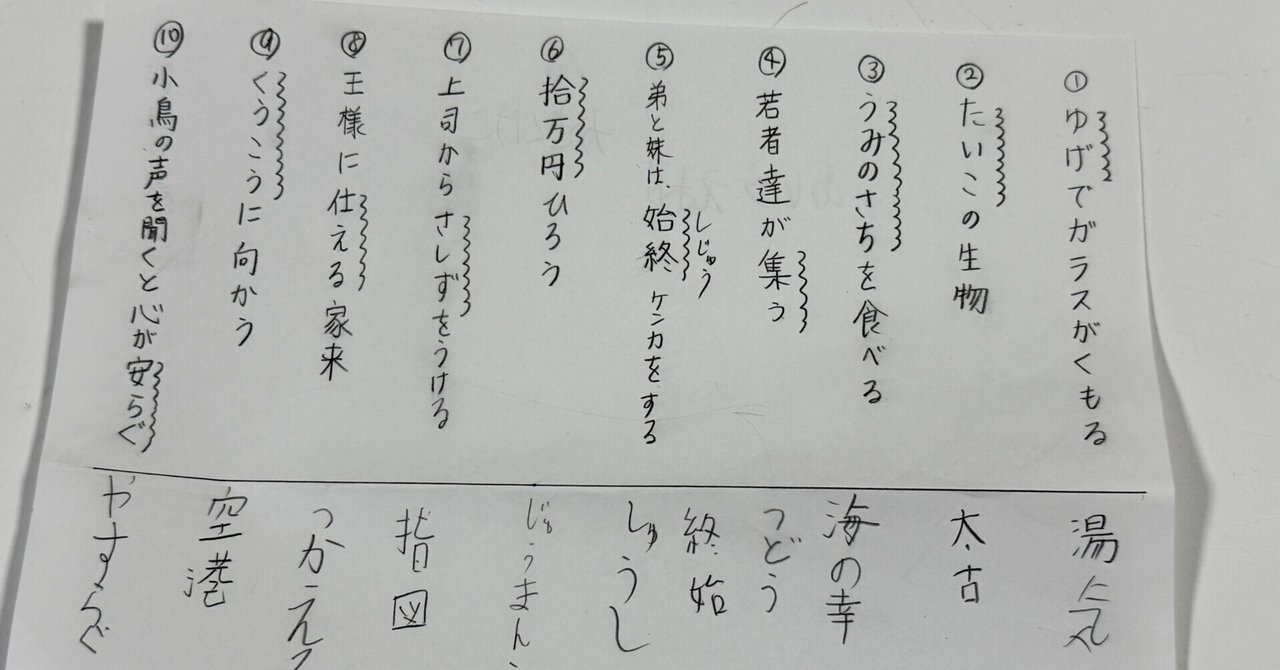 ① ゆげでガラスがくもる
② たいこの生物
③ うみのさちを食べる
④ 若者達が集う
⑤ 弟と妹は、始終ケンカをする
しじゅう
⑥ 拾万円ひろう
⑦ 上司からさしずをうける
⑧ 王様に仕える家来
⑨ くうこうに向かう
⑩ 小鳥の声を聞くと心が安らぐ
湯気
太古
海の幸
つどう
終始
しゅうし
じゅうまん
指図
つかえる
空港
やすらぐ